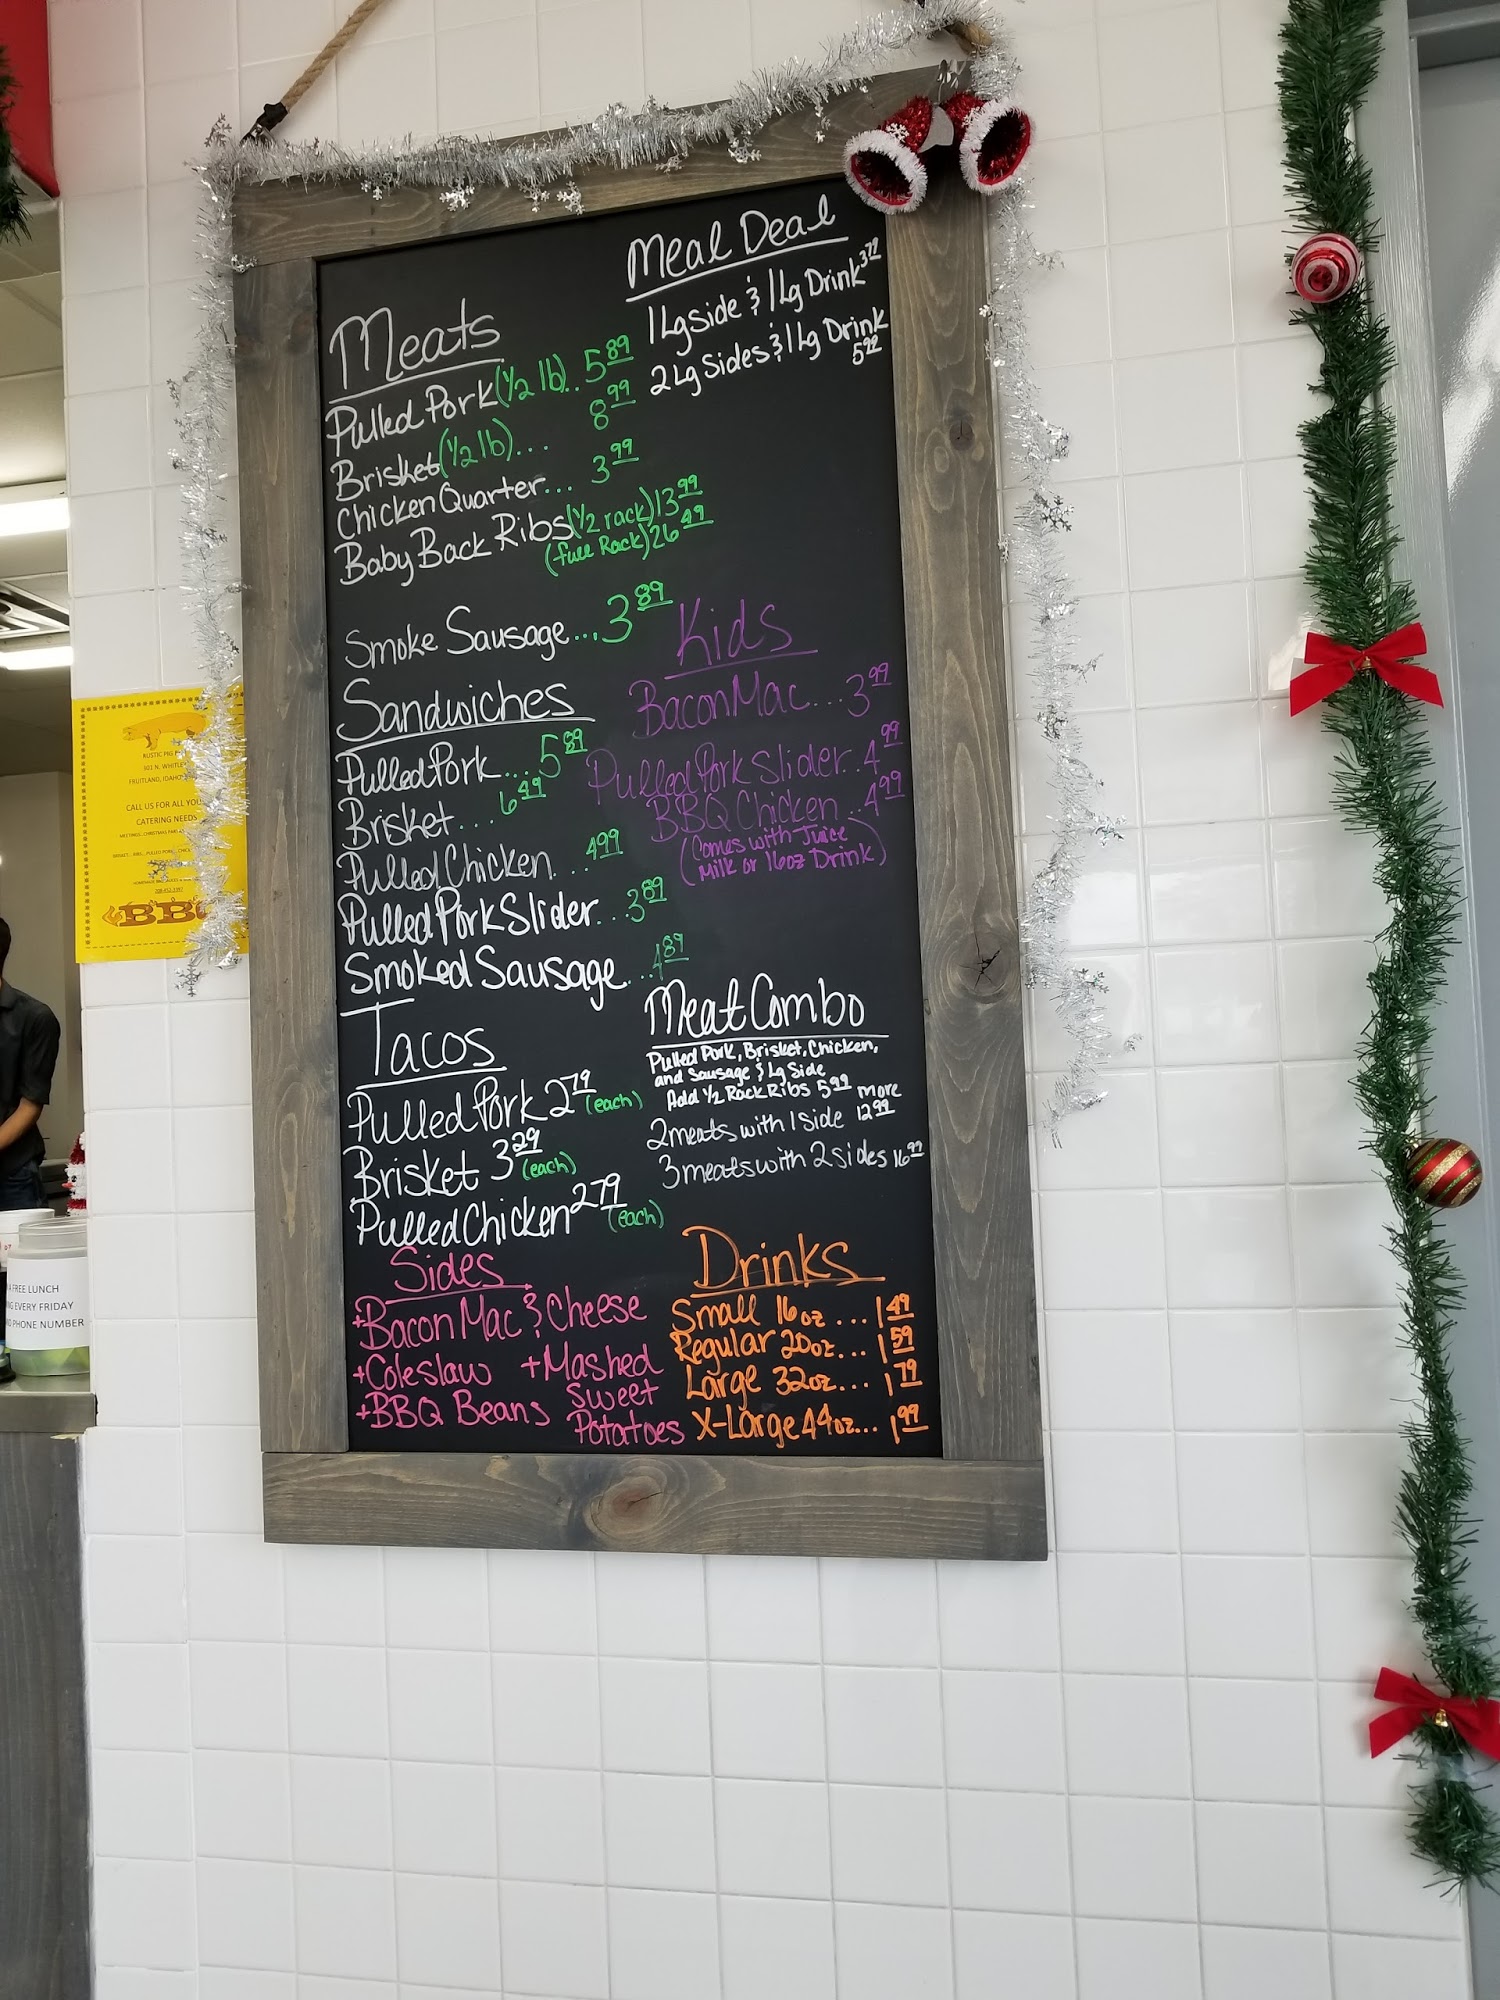 Meal Deal
1 Lg Side & 1 Lg Drink 3.79
2 Lg Sides & 1 Lg Drink
5.99
Meats
Pulled Pork (1/2 lb).. 5.89
Brisket (1/2 lb)... 8.99
Chicken Quarter... 3.99
Baby Back Ribs (1/2 rack) 13.99
(full Rack) 26.49
Smoke Sausage... 3.89
Sandwiches
Pulled Pork.... 5.89
Brisket.... 6.49
Pulled Chicken... 4.99
Pulled Pork Slider... 3.89
Smoked Sausage... 4.89
Kids
Bacon Mac... 3.99
Pulled Pork Slider.. 4.99
BBQ Chicken.. 4.99
(Comes with Juice
Milk or 16oz Drink)
Tacos
Pulled Pork 2.79 (each)
Brisket 3.29 (each)
Pulled Chicken 2.79 (each)
Meat Combo
Pulled Pork, Brisket, Chicken,
and Sausage & Lg Side
Add 1/2 Rack Ribs 5.99 more
2 meats with 1 side 12.99
3 meats with 2 sides 16.99
Sides
+Bacon Mac & Cheese
+Coleslaw +Mashed
Sweet
+BBQ Beans Potatoes
Drinks
Small 16oz... 1.49
Regular 20oz... 1.59
Large 32oz... 1.79
X-Large 44oz... 1.99
RUSTIC PIG
301 N. WHITLEY
FRUITLAND, IDAHO
CALL US FOR ALL YOU
CATERING NEEDS
BBQ
A FREE LUNCH
NG EVERY FRIDAY
PHONE NUMBER